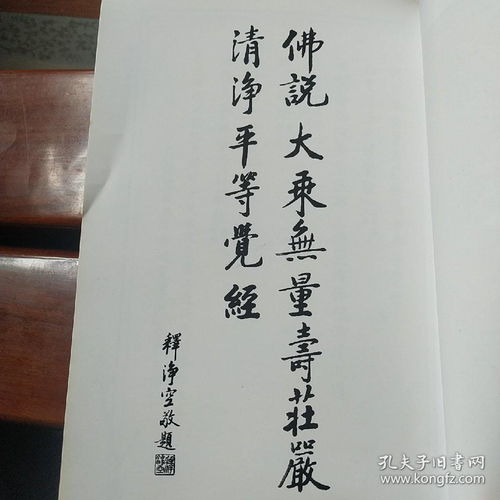 佛說大乘無量壽莊嚴
清淨平等覺經
釋淨空敬題
孔夫子旧书网
www.kongfz.com